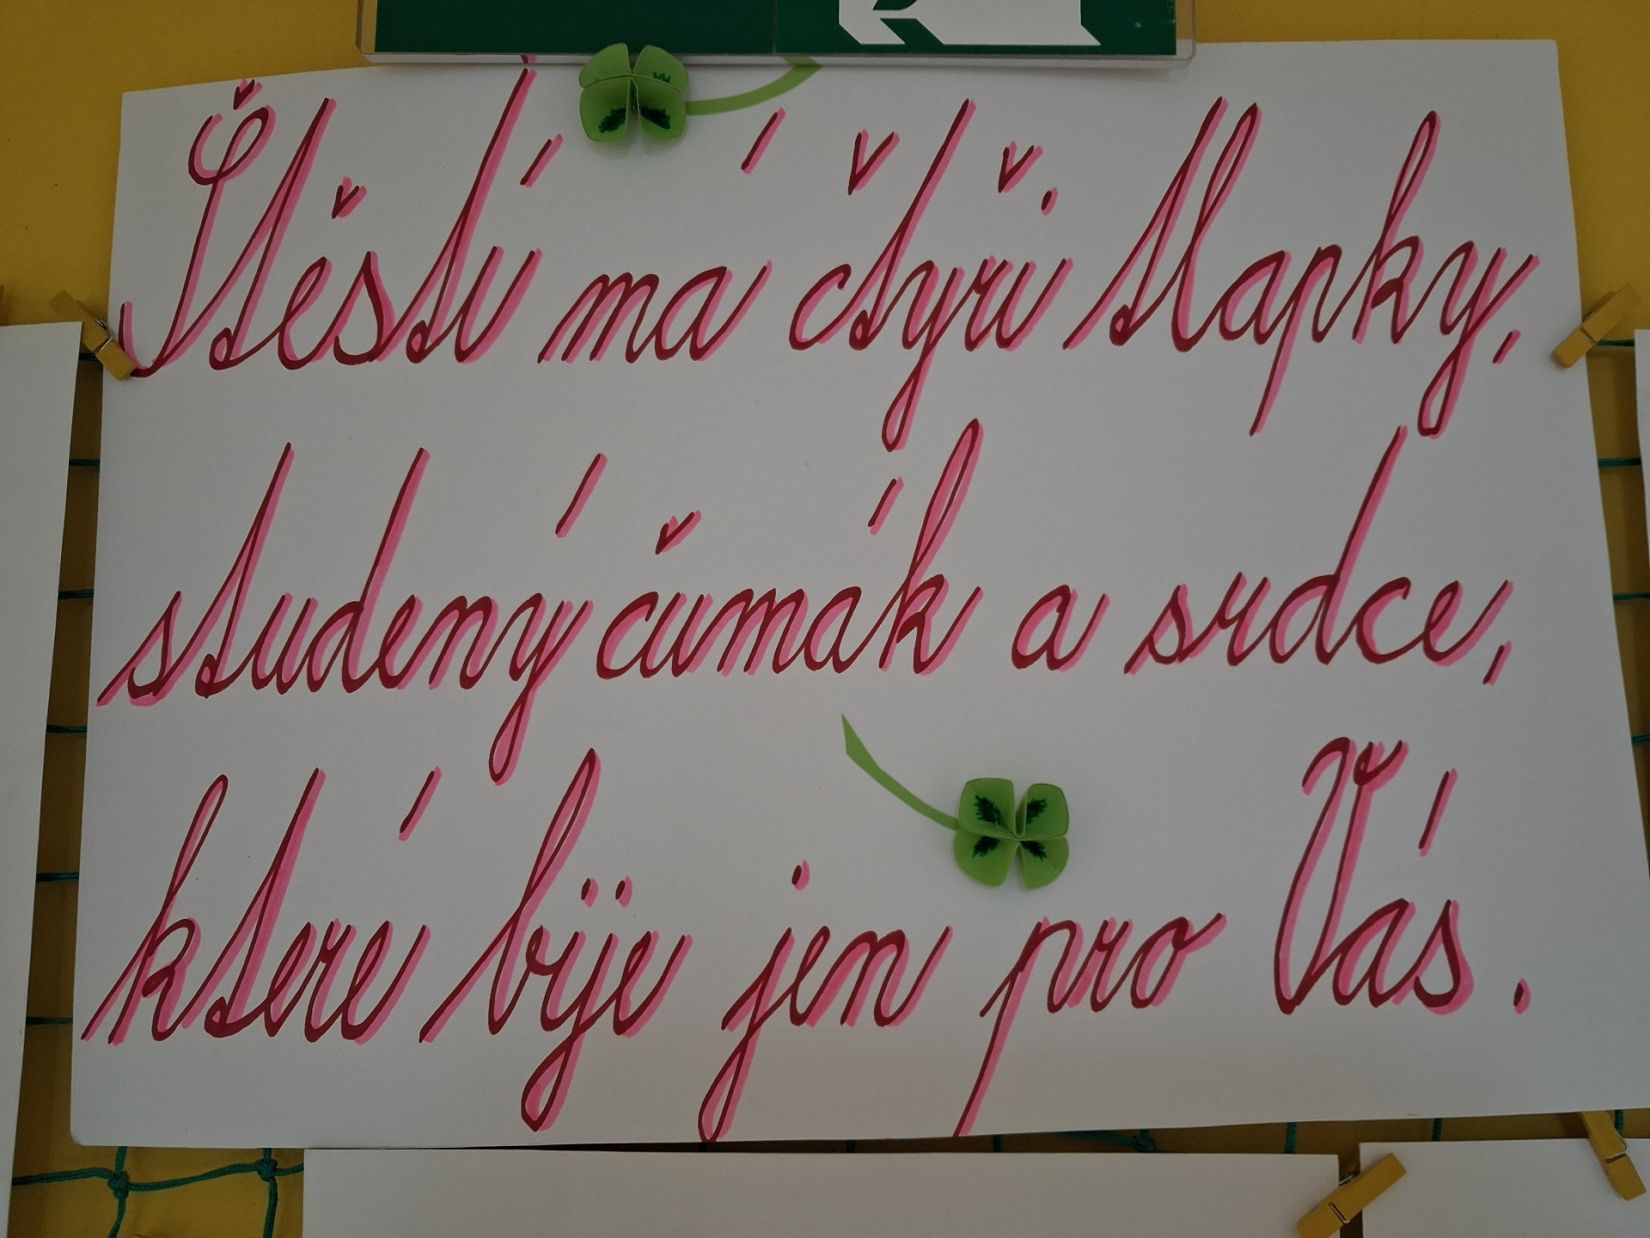 Štěstí má čtyři tlapky,
studený čumák a srdce,
které bije jen pro Vás.